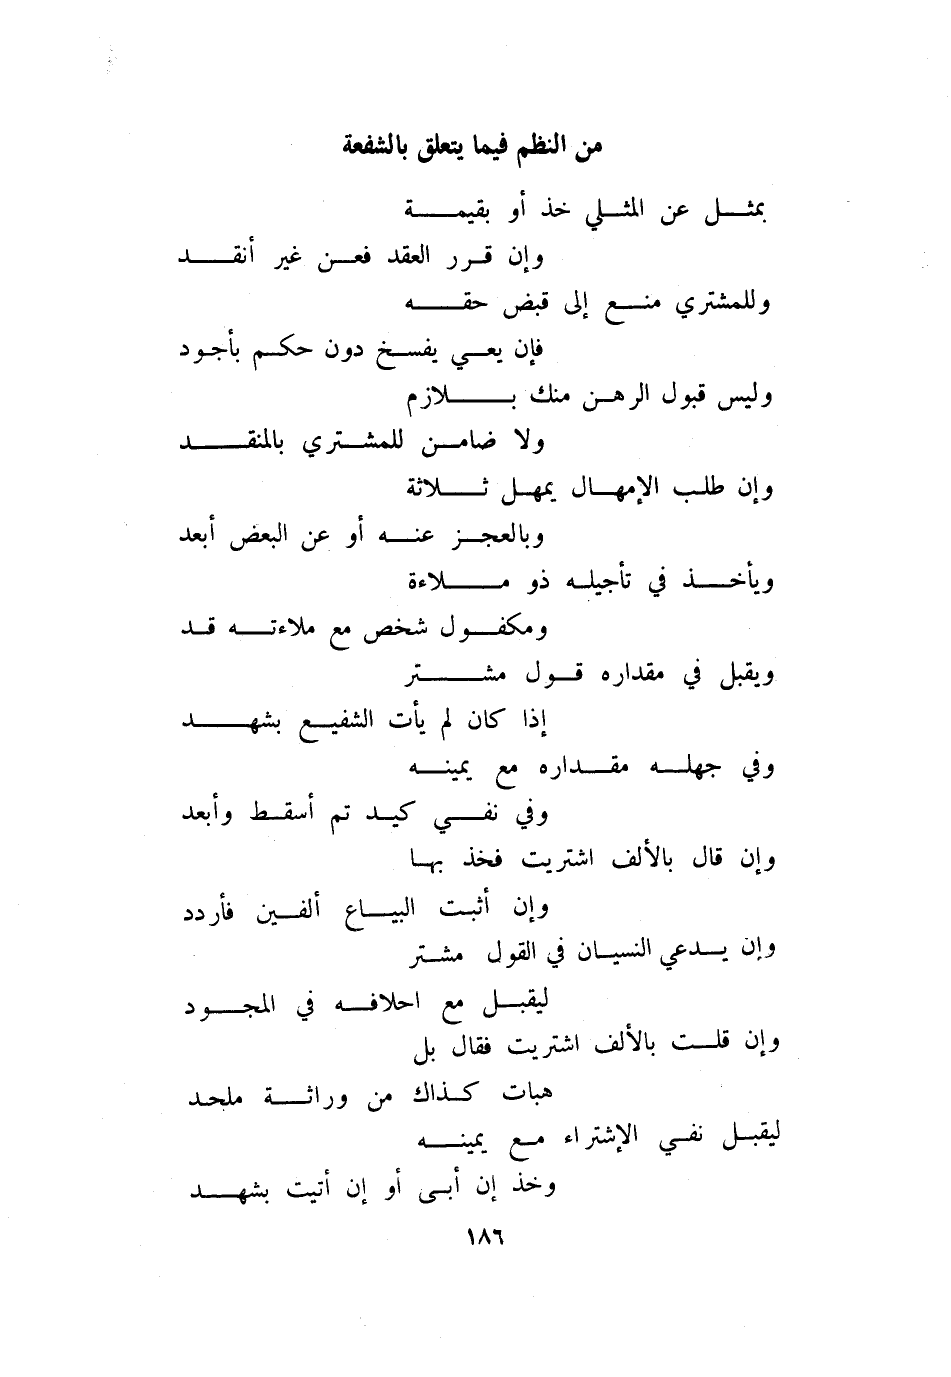 من النظم فيما يتعلق بالشفعة
بمثل عن المثلي خذ أو بقيمة
وإن قرر العقد فعن غير أنقد
وللمشتري منع إلى قبض حقه
فإن يعي يفسخ دون حكم بأجود
وليس قبول الرهن منك بلازم
ولا ضامن للمشتري بالمنقد
وإن طلب الإمهال يمهل ثلاثة
وبالعجز عنه أو عن البعض أبعد
ويأخذ في تأجيله ذو ملاءة
ومكفول شخص مع ملاءته قد
ويقبل في مقداره قول مشتر
إذا كان لم يأت الشفيع بشهد
وفي جهله مقداره مع يمينه
وفي نفي كيد تم أسقط وأبعد
وإن قال بالألف اشتريت فخذ بها
وإن أثبت البياع ألفين فأردد
وإن يدعي النسيان في القول مشتر
ليقبل مع احلافه في المجود
وإن قلت بالألف اشتريت فقال بل
هبات كذاك من وراثة ملحد
ليقبل نفي الإشتراء مع يمينه
وخذ إن أبى أو إن أتيت بشهد
١٨٦